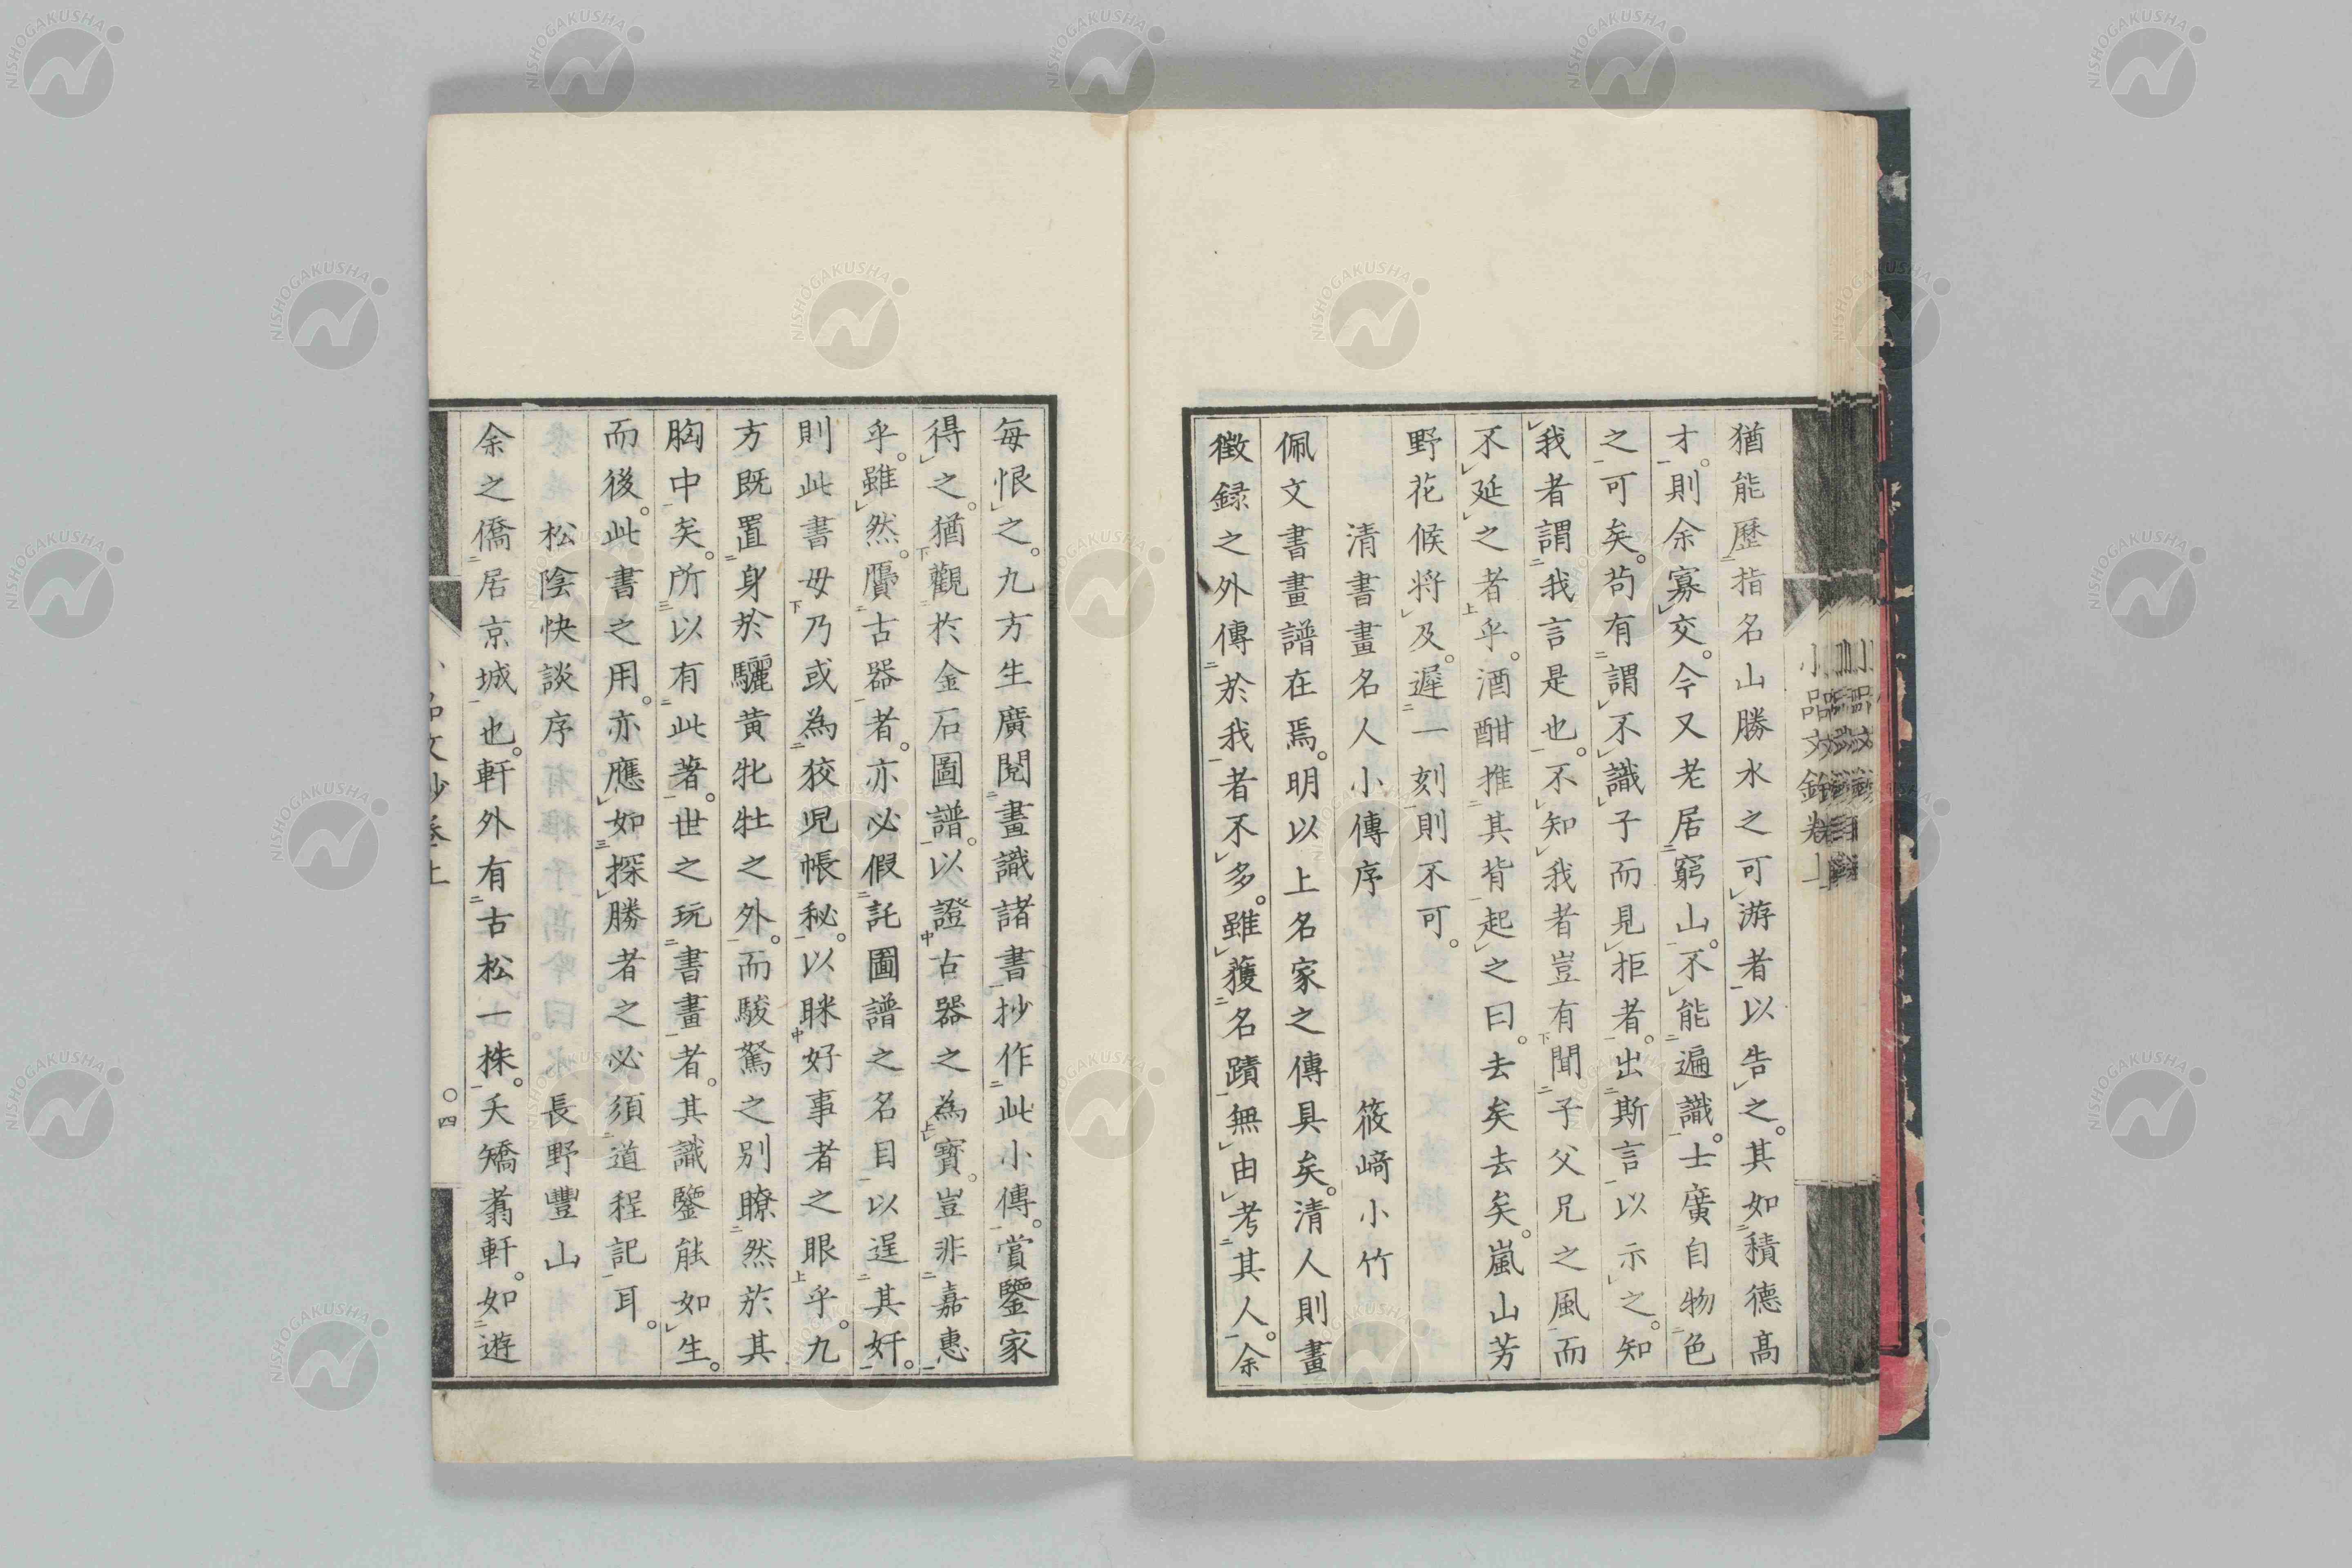 猶能歴指名山勝水之可游者以告之。其如積德高
才。則余寡交。今又老居窮山。不能遍識。士廣自物色
之可矣。苟有謂不識子而見拒者。出斯言以示之。知
我者謂我言是也。不知我者豈有聞子父兄之風而
不延之者乎。酒酣推其背起之曰。去矣去矣。嵐山芳
野花候将及。遲一刻則不可。
清書畫名人小傳序 筱﨑小竹
佩文書畫譜在焉。明以上名家之傳具矣。清人則畫
徴録之外傳於我者不多。雖獲名蹟無由考其人。余
每恨之。九方生廣閲畫識諸書抄作此小傳。賞鑒家
得之。猶觀於金石圖譜。以證古器之為寶。豈非嘉惠
乎。雖然。贋古器者。亦必假託圖譜之名目以逞其奸。
則此書毋乃或為狡児帳秘。以眯好事者之眼乎。九
方既置身於驪黄牝牡之外。而駿駑之別瞭然於其
胸中矣。所以有此著。世之玩書畫者。其識鑒能如生。
而後。此書之用。亦應如探勝者之必須道程記耳。
松陰快談序 長野豐山
余之僑居京城也。軒外有古松一株。夭矯翥軒。如遊
小品文鈔卷上
四
NISHOGAKUSHA